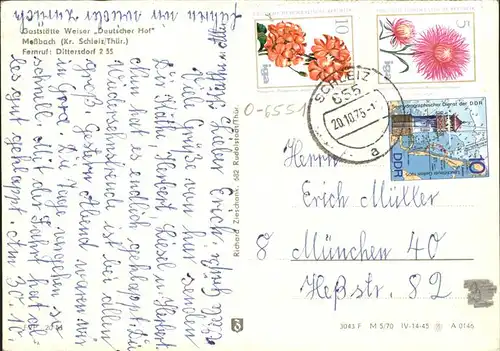 Gaststätte Weiser „Deutscher Hof"
Meßbach (Kr. Schleiz/Thür.)
Fernruf: Dittersdorf 2 35
Lieber Erich!
Viele Grüße von hier senden
Dir Käthe, Herbert, Liesel u. Herbert.
hat es endlich geklappt. Die
Wiedersehensfreude ist bei allen
groß. Gestern Abend waren wir
in Gera. Die Tage vergehen so
schnell. Mit der Fahrt hat al-
les gut geklappt. Am 30.10.
fahren wir wieder zurück
Richard Zieschank, 682 Rudolstadt/Thür.
10
DDR
5
DDR
SCHLEIZ 1
655
20.10.75-1
a
O-6551
Hydrographischer Dienst der DDR
10
DDR
Herrn
Erich Müller
8 München 40
Heßstr. 82
3043 F M 5/70 IV-14-45 A 0146